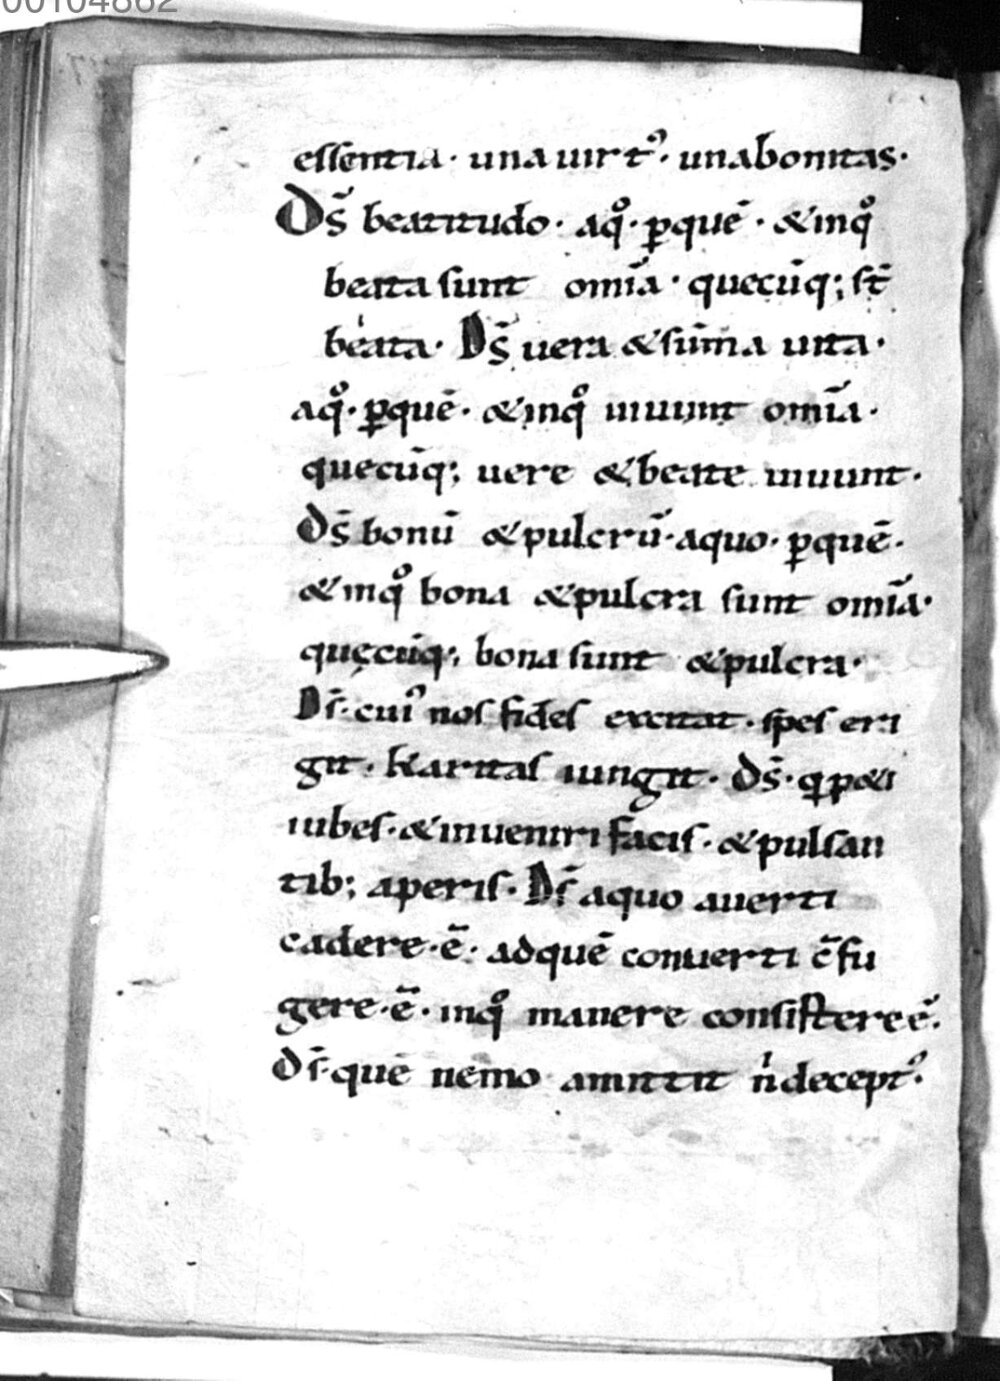 00104862
essentia · una uirt᾽ · una bonitas ·
Ds̄ beatitudo · aqͦ · ꝑquē · & inqͦ
beata sunt omīa · quecūq; st̄
beata · Ds̄ uera & sūma uita ·
aqͦ · ꝑquē · & inqͦ uiuunt omīa ·
quecūq; uere & beate uiuunt ·
ds̄ bonū & pulcrū · aquo · ꝑquē ·
& inqͦ bona & pulcra sunt omīa ·
quęcūq; bona sunt & pulcra ·
Ds̄ · cui᾽ nos fides excitat · spes eri
git · karitas iungit · ds̄ · q p&i
iubes · & inueniri facis · & pulsan
tib; aperis · Ds̄ aquo auerti
cadere · ē · adquē conuerti c̄su
gere · ē · inqͦ manere consistere ē ·
ds̄ · quē nemo amittit n̄ decept᾽ ·